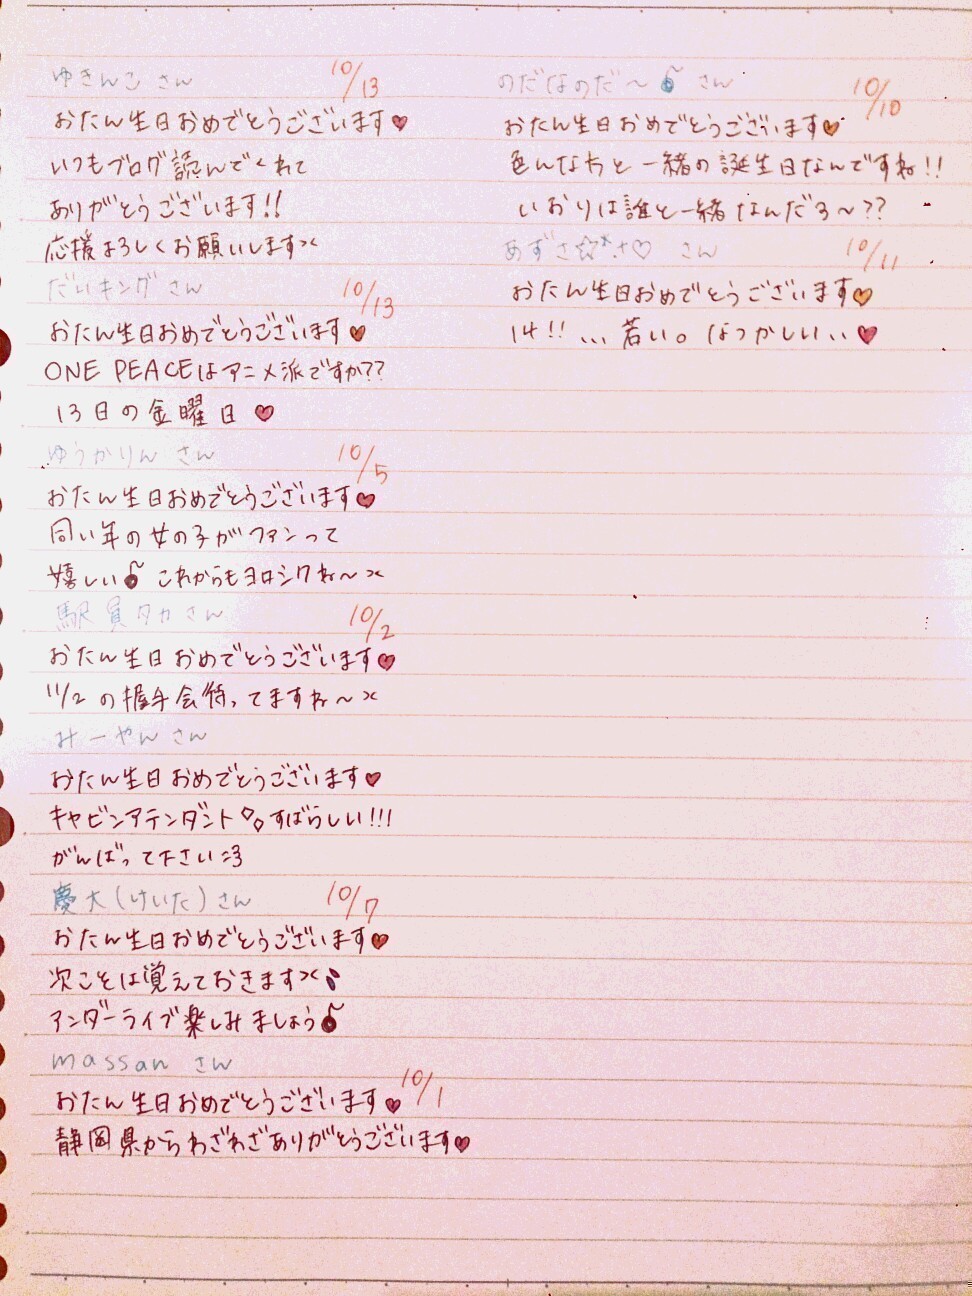 ゆきんこ さん 10/13
おたん生日おめでとうございます♥
いつもブログ読んでくれて
ありがとうございます!!
応援よろしくお願いします><
だいキング さん 10/13
おたん生日おめでとうございます♥
ONE PEACEはアニメ派ですか??
13日の金曜日♥
ゆうかりん さん 10/5
おたん生日おめでとうございます♥
同い年の女の子がファンって
嬉しい♪ これからもヨロシクね〜><
駅員タカさん 10/2
おたん生日おめでとうございます♥
11/2の握手会待ってますね〜><
みーやん さん
おたん生日おめでとうございます♥
キャビンアテンダント すばらしい!!!
がんばって下さい=3
慶大(けいた)さん 10/7
おたん生日おめでとうございます♥
次こそは覚えておきます><
アンダーライブ楽しみましょう♪
massan さん
おたん生日おめでとうございます♥ 10/1
静岡県からわざわざありがとうございます♥
のだなのだ〜♪ さん 10/10
おたん生日おめでとうございます♥
色んな方と一緒の誕生日なんですね!!
いおりは誰と一緒なんだろ〜??
あずさ☆*.+♡ さん 10/11
おたん生日おめでとうございます♥
14!! ... 若い。なつかしい..♥